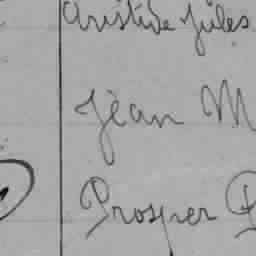 Aristide Jules
Jean M
Prosper